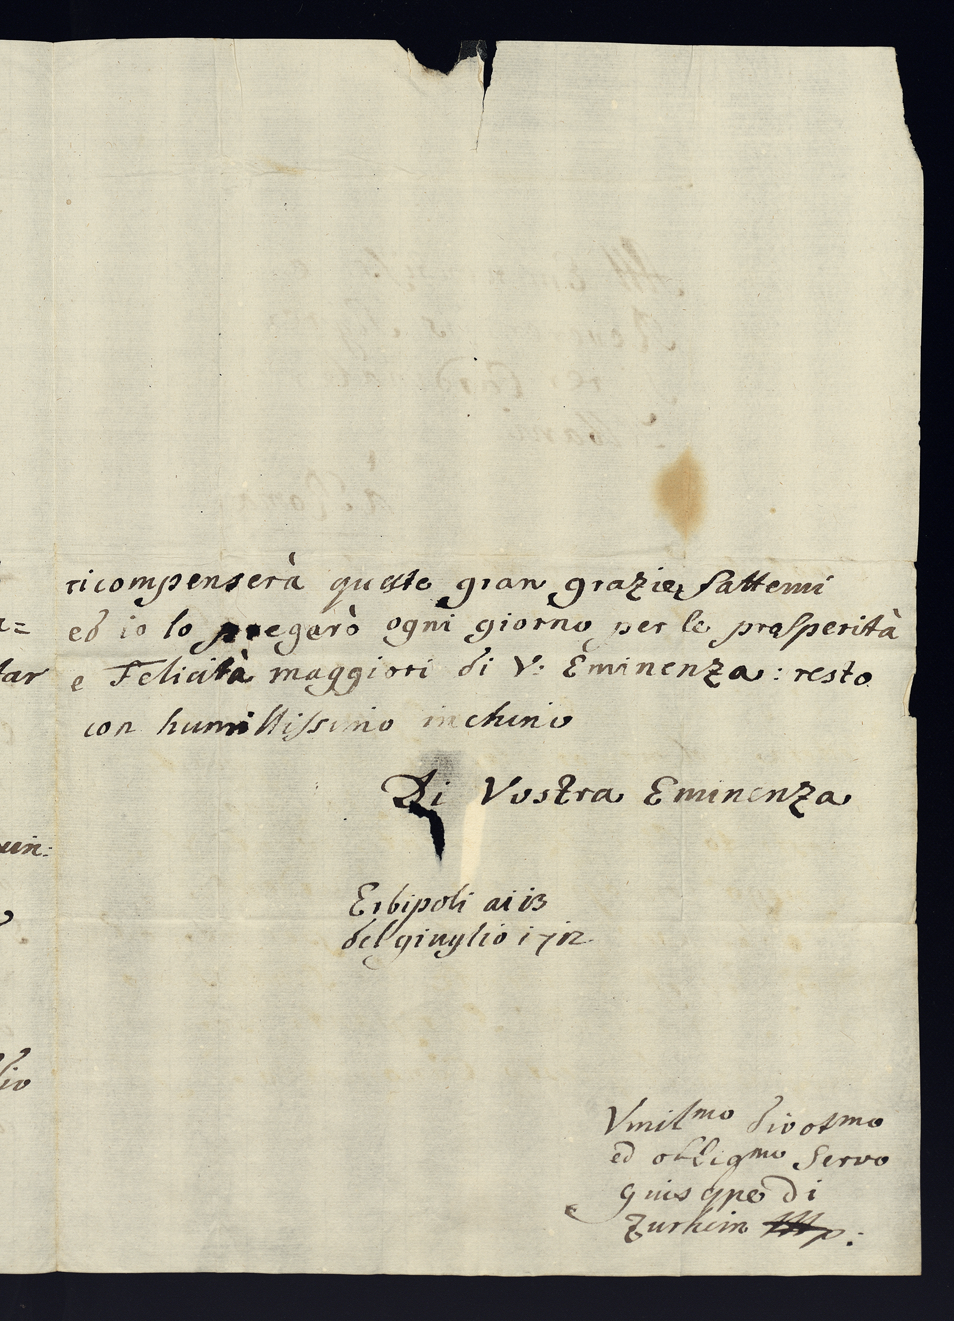 ricompenserà queste gran grazie fattemi
ed io lo pregarò ogni giorno per le prosperità
e Felicità maggiori di V: Eminenza: resto
con humillissimo inchino
Di Vostra Eminenza
Erbipoli ai 13
del giuglio 1712
Vmilmo divotmo
ed obligmo Servo
guisepe di
Zurhein
tar
uin: